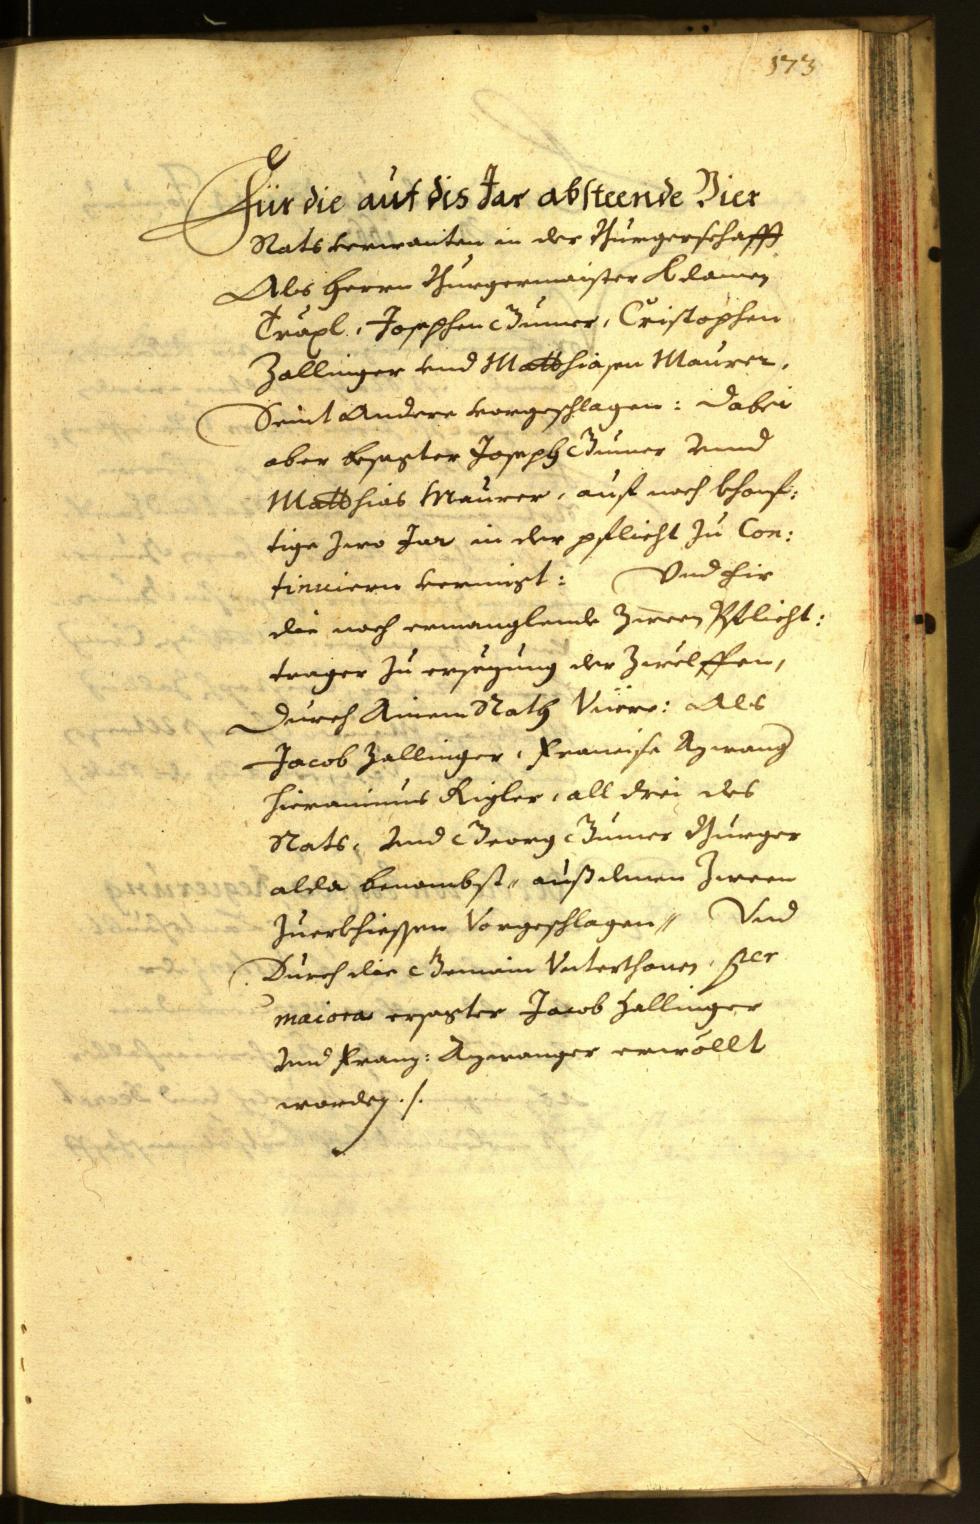 173
Für die auf dis Jar absteende Vier
Rats verwanten in der Burgerschafft
Als Herrn Burgermaister Adamen
Träpl, Josephen Gumer, Cristophen
Zallinger vnd Matthiasen Maurer,
Seint Andere vorgeschlagen: dabei
aber besagter Joseph Gumer vnnd
Matthias Maurer, auf noch khonf:
tige zwo Jar in der pflicht zu Con:
tinuiern vermigt: Vnd fir
die noch ermanglende Zween Pflicht:
trager zu ersezung der Zwelffen,
Durch Ainem Rath Viere: Als
Jacob Zallinger, Francisc Azwang
Hieranimus Rigler, all drei des
Rats, Vnd Georg Gumer Burger
alda benambst, auß denen Zween
Zuerkhiessen Vorgeschlagen, Vnd
Durch die Gemain Vnterthonen, per
maiora ersagter Jacob Zallinger
Vnd Franz: Azwanger erwöllt
worden ./.